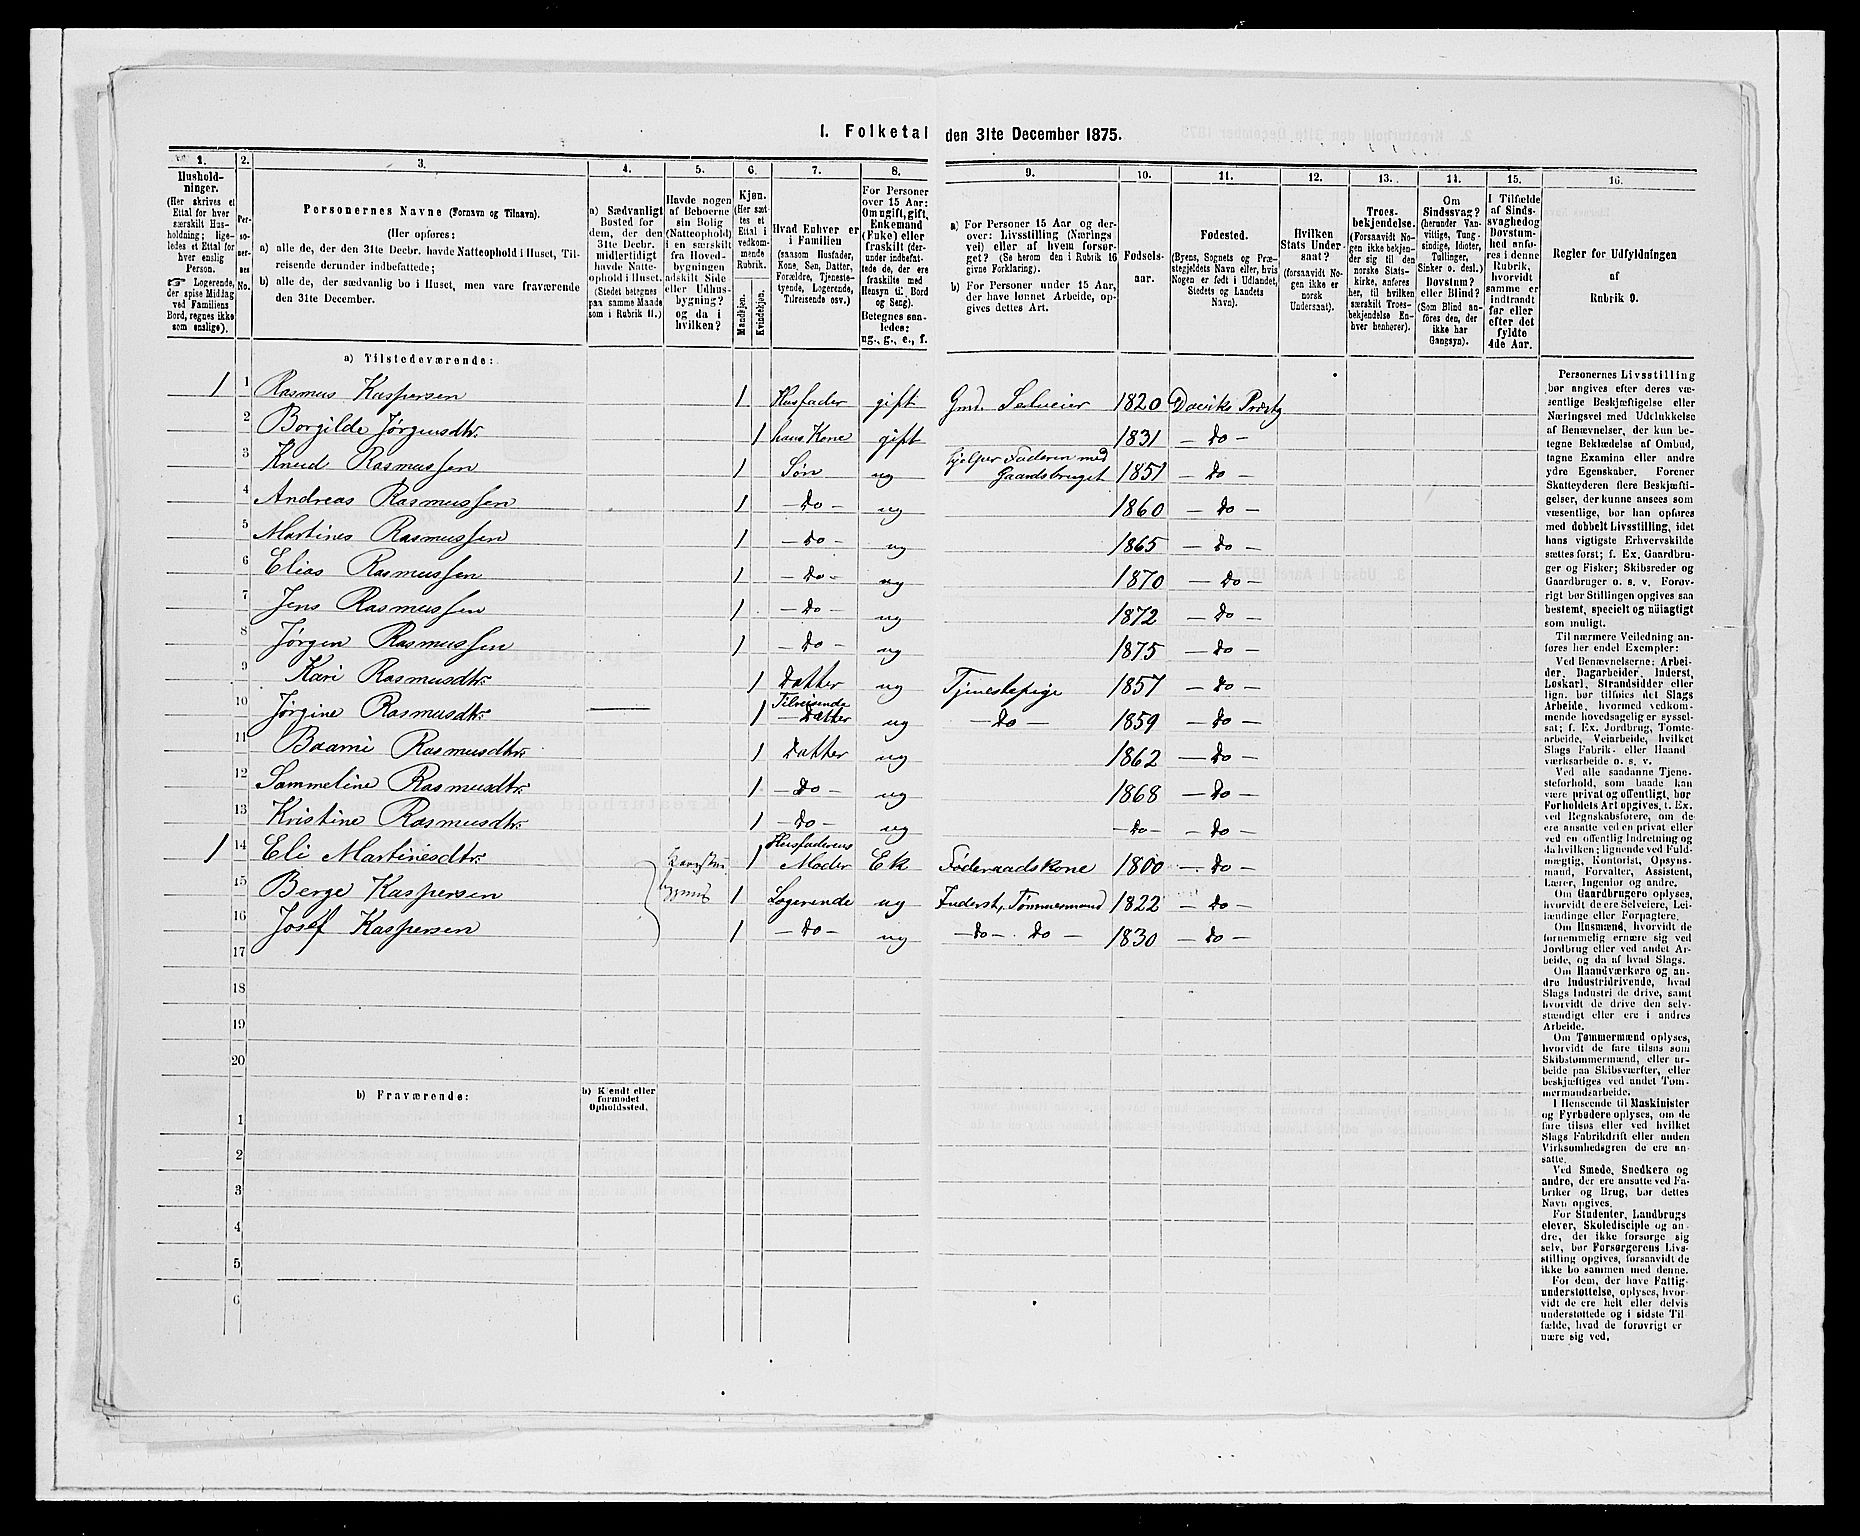 1. Folketal den 31te December 1875.
1. 2. 3. 4. 5. 6. 7. 8. 9. 10. 11. 12. 13. 14. 15. 16.
Hushold-
ninger.
(Her skrives et
Ettal for hver
særskilt Hus-
holdning; lige-
ledes et Ettal for
hver enslig
Person.
☞ Logerende,
der spise Middag
ved Familiens
Bord, regnes ikke
som enslige).
Per-
so-
ner-
nes
No.
Personernes Navne (Fornavn og Tilnavn).
(Her opføres:
a) alle de, der den 31te Decbr. havde Natteophold i Huset, Til-
reisende derunder indbefattede;
b) alle de, der sædvanlig bo i Huset, men vare fraværende
den 31te December.
a) Sædvanligt
Bosted for
dem, der den
31te Decbr.
midlertidigt
havde Natte-
ophold i Huset.
(Stedet betegnes
paa samme Maade
som i Rubrik 11.)
Havde nogen
af Beboerne
sin Bolig
(Natteophold)
i en særskilt
fra Hoved-
bygningen
adskilt Side
eller Udhus-
bygning?
og da i
hvilken?
Kjøn.
(Her sæt-
tes et
Ettal i
vedkom-
mende
Rubrik.
Mandkjøn.
Kvindekjøn.
Hvad Enhver er
i Familien
(saasom Husfader,
Kone, Søn, Datter,
Forældre, Tjeneste-
tyende, Logerende,
Tilreisende osv.)
For Personer
over 15 Aar:
Om ugift, gift,
Enkemand
(Enke) eller
fraskilt (der-
under indbefat-
tede de, der ere
fraskilte med
Hensyn til Bord
og Seng).
Betegnes saa-
ledes:
ug., g., e., f.
a) For Personer 15 Aar og der-
over: Livsstilling (Nærings-
vei) eller af hvem forsør-
get? (Se herom den i Rubrik 16
givne Forklaring).
b) For Personer under 15 Aar,
der have lønnet Arbeide, op-
gives dettes Art.
Fødsels-
aar.
Fødested.
(Byens, Sognets og Præ-
stegjeldets Navn eller, hvis
Nogen er født i Udlandet,
Stedets og Landets
Navn).
Hvilken
Stats Under-
saat?
(forsaavidt No-
gen ikke er
norsk
Undersaat).
Troes-
bekjendelse.
(Forsaavidt No-
gen ikke bekjen-
der sig til den
norske Stats-
kirke, anføres
her, til hvilken
særskilt Troes-
bekjendelse En-
hver henhører).
Om
Sindssvag?
(herunder Van-
vittige, Tung-
sindige, Idioter,
Tullinger,
Sinker o. desl.)
Døvstum?
eller Blind?
(Som Blind an-
føres den, der
ikke har
Gangsyn).
I Tilfælde
af Sinds-
svaghed og
Døvstum-
hed anfø-
res i denne
Rubrik,
hvorvidt
samme er
indtraadt
før eller
efter det
fyldte
4de Aar.
Regler for Udfyldningen
af
Rubrik 9.
a) Tilstedeværende:
1 1 Rasmus Kaspersen 1 Husfader gift Gmd. Selveier 1820 Daviks Præstg
2 Borgilde Jørgensdtr. 1 hans Kone gift 1831 - do -
3 Knud Rasmussen 1 Søn ug hjelper Faderen med Gaardsbruget 1851 - do -
4 Andreas Rasmussen 1 - do - ug 1860 - do -
5 Martines Rasmussen 1 - do - ug 1865 - do -
6 Elias Rasmussen 1 - do - ug 1870 - do -
7 Jens Rasmussen 1 - do - ug 1872 - do -
8 Jørgen Rasmussen 1 - do - ug 1875 - do -
9 Kari Rasmusdtr. 1 Datter ug Tjenestepige 1857 - do -
10 Jørgine Rasmusdtr. — 1 Tilreisende - Datter ug - do - 1859 - do -
11 Baami Rasmusdtr. 1 Datter ug 1862 - do -
12 Sammeline Rasmusdtr. 1 - do - ug 1868 - do -
13 Kristine Rasmusdtr. 1 - do - ug - do - - do -
1 14 Eli Martinesdtr. 1 Husfaderens Moder Ek Føderaadskone 1800 - do -
15 Berge Kaspersen 1 Logerende ug Inderst, Tømmermand 1822 - do -
16 Josef Kaspersen 1 - do - ug - do - do - 1830 - do -
17
18
19
20
b) Fraværende:
b) Kjendt eller
formodet
Opholdssted.
1
2
3
4
5
6
Personernes Livsstilling
bør angives efter deres væ-
sentlige Beskjæftigelse eller
Næringsvei med Udelukkelse
af Benævnelser, der kun be-
tegne Beklædelse af Ombud,
tagne Examina eller andre
ydre Egenskaber. Forener
Skatteyderen flere Beskjæfti-
gelser, der kunne ansees som
væsentlige, bør han opføres
med dobbelt Livsstilling, idet
hans vigtigste Erhvervskilde
sættes først; f. Ex. Gaardbru-
ger og Fisker; Skibsreder og
Gaardbruger o. s. v. Forøv-
rigt bør Stillingen opgives saa
bestemt, specielt og nøiagtigt
som muligt.
Til nærmere Veiledning an-
føres her endel Exempler:
Ved Benævnelserne: Arbei-
der, Dagarbeider, Inderst,
Løskarl, Strandsidder eller
lign. bør tilføies det Slags
Arbeide, hvormed vedkom-
mende hovedsagelig er syssel-
sat; f. Ex. Jordbrug, Tomte-
arbeide, Veiarbeide, hvilket
Slags Fabrik- eller Haand
værksarbeide o. s. v.
Ved alle saadanne Tjene-
steforhold, som baade kan
være privat og offentligt, bør
Forholdets Art opgives, t. Ex.
ved Regnskabsførere, om de
ere ansatte ved en privat eller
ved en offentlig Indretning og
da hvilken; lignende ved Fuld-
mægtig, Kontorist, Opsyns-
mand, Forvalter, Assistent,
Lærer, Ingeniør og andre.
Om Gaardbrugere oplyses,
hvorvidt de ere Selveiere, Lei-
lændinge eller Forpagtere.
Om Husmænd, hvorvidt de
fornemmelig ernære sig ved
Jordbrug eller ved andet Ar-
beide, og da af hvad Slags.
Om Haandværkere og an-
dre Industridrivende, hvad
Slags Industri de drive, samt
hvorvidt de drive den selv-
stændigt eller ere i andres
Arbeide.
Om Tømmermænd oplyses,
hvorvidt de fare tilsøs som
Skibstømmermænd, eller ar-
beide paa Skibsværfter, eller
beskjæftiges ved andet Tøm-
mermandsarbeide.
I Henseende til Maskinister
og Fyrbødere oplyses, om de
fare tilsøs eller ved hvilket
Slags Fabrikdrift eller anden
Virksomhedsgren de ere an-
satte.
Ved Smede, Snedkere og
andre, der ere ansatte ved Fa-
briker og Brug, bør dettes
Navn opgives.
For Studenter, Landbrugs-
elever, Skoledisciple og an-
dre, der ikke forsørge sig
selv, bør Forsørgerens Livs-
stilling opgives, forsaavidt de
ikke bo sammen med denne.
For dem, der have Fattig-
understøttelse, oplyses, hvor-
vidt de ere helt eller delvis
understøttede og i sidste Til-
fælde, hvad de forøvrigt er
nære sig ved.